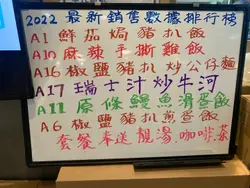 2022最新銷售數據排行榜
A1 鮮茄焗豬扒飯
A10 麻辣手撕雞飯
A16 椒鹽豬扒炒公仔麵
A17 瑞士汁炒牛河
A11 原條鰻魚滑蛋飯
A6 椒鹽豬扒煎蛋飯
套餐奉送靚湯.咖啡.茶